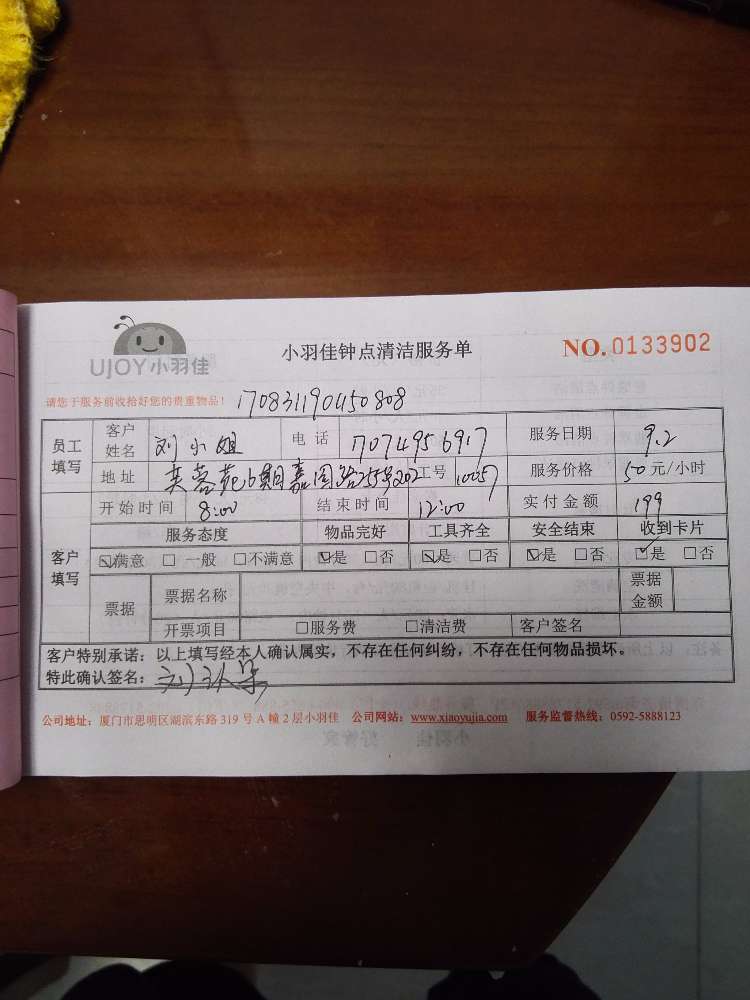 UJOY小羽佳
小羽佳钟点清洁服务单
NO.0133902
请您于服务前收拾好您的贵重物品！
170831190450808
员工填写 客户姓名 刘小姐 电话 17074956917 服务日期 9.2
地址 芙蓉苑b期嘉园路255号202 工号 10057 服务价格 50元/小时
客户填写 开始时间 8:00 结束时间 12:00 实付金额 199
服务态度 物品完好 工具齐全 安全结束 收到卡片
☑满意 □一般 □不满意 ☑是 □否 ☑是 □否 ☑是 □否 ☑是 □否
票据 票据名称 票据金额
开票项目 □服务费 □清洁费 客户签名
客户特别承诺：以上填写经本人确认属实，不存在任何纠纷，不存在任何物品损坏。
特此确认签名：刘
公司地址：厦门市思明区湖滨东路319号A幢2层小羽佳 公司网站：www.xiaoyujia.com 服务监督热线：0592-5888123